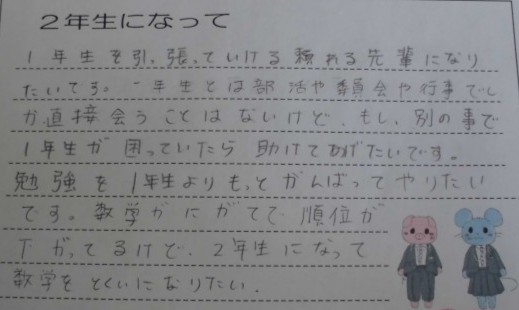 ２年生になって
１年生を引っ張っていける頼れる先輩になり
たいです。一年生とは部活や委員会や行事でし
か直接会うことはないけど、もし、別の事で
１年生が困っていたら助けてあげたいです。
勉強を1年生よりもっとがんばってやりたい
です。数学がにがてで順位が
下がってるけど、2年生になって
数学をとくいになりたい.